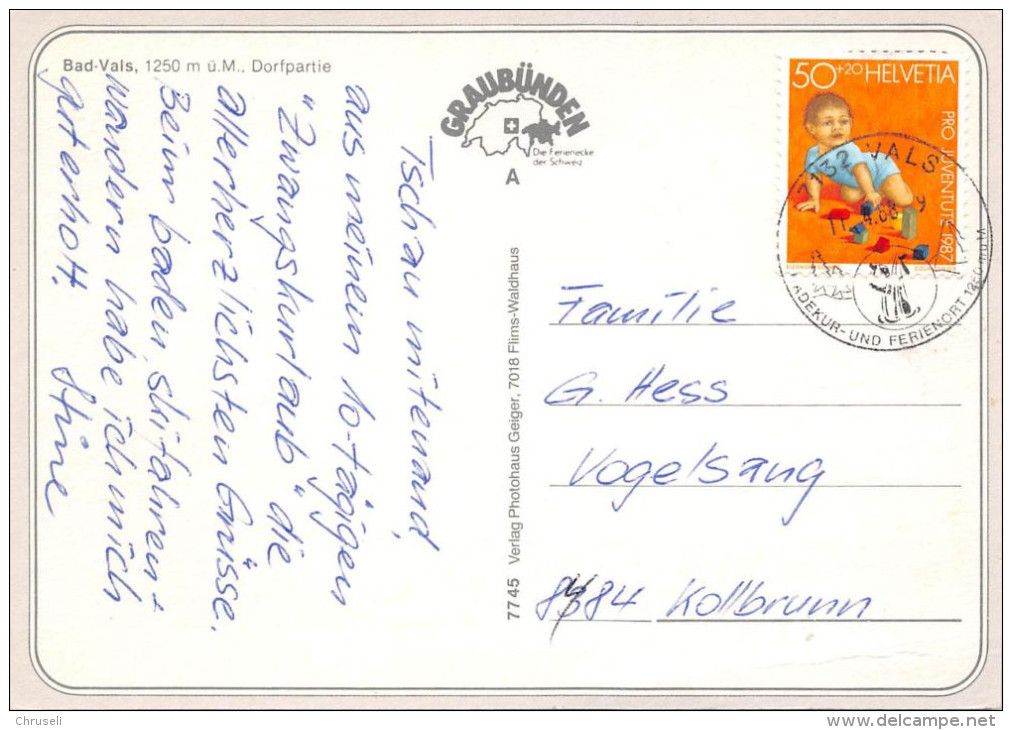 Bad-Vals, 1250 m ü.M., Dorfpartie
GRAUBÜNDEN
Die Ferienecke
der Schweiz
A
50+20 HELVETIA
PRO JUVENTUTE 1987
7132 VALS
BADEKUR- UND FERIENORT 1250 m ü.M.
Tschau mitenand,
aus meinen 10-tägigen
"Zwangskurlaub" die
allerherzlichsten Grüsse.
Beim baden, skifahren +
wandern habe ich mich
gut erholt.
Stine
7745 Verlag Photohaus Geiger, 7018 Flims-Waldhaus
Familie
G. Hess
Vogelsang
8484 Kollbrunn
Chruseli
delcampe.net